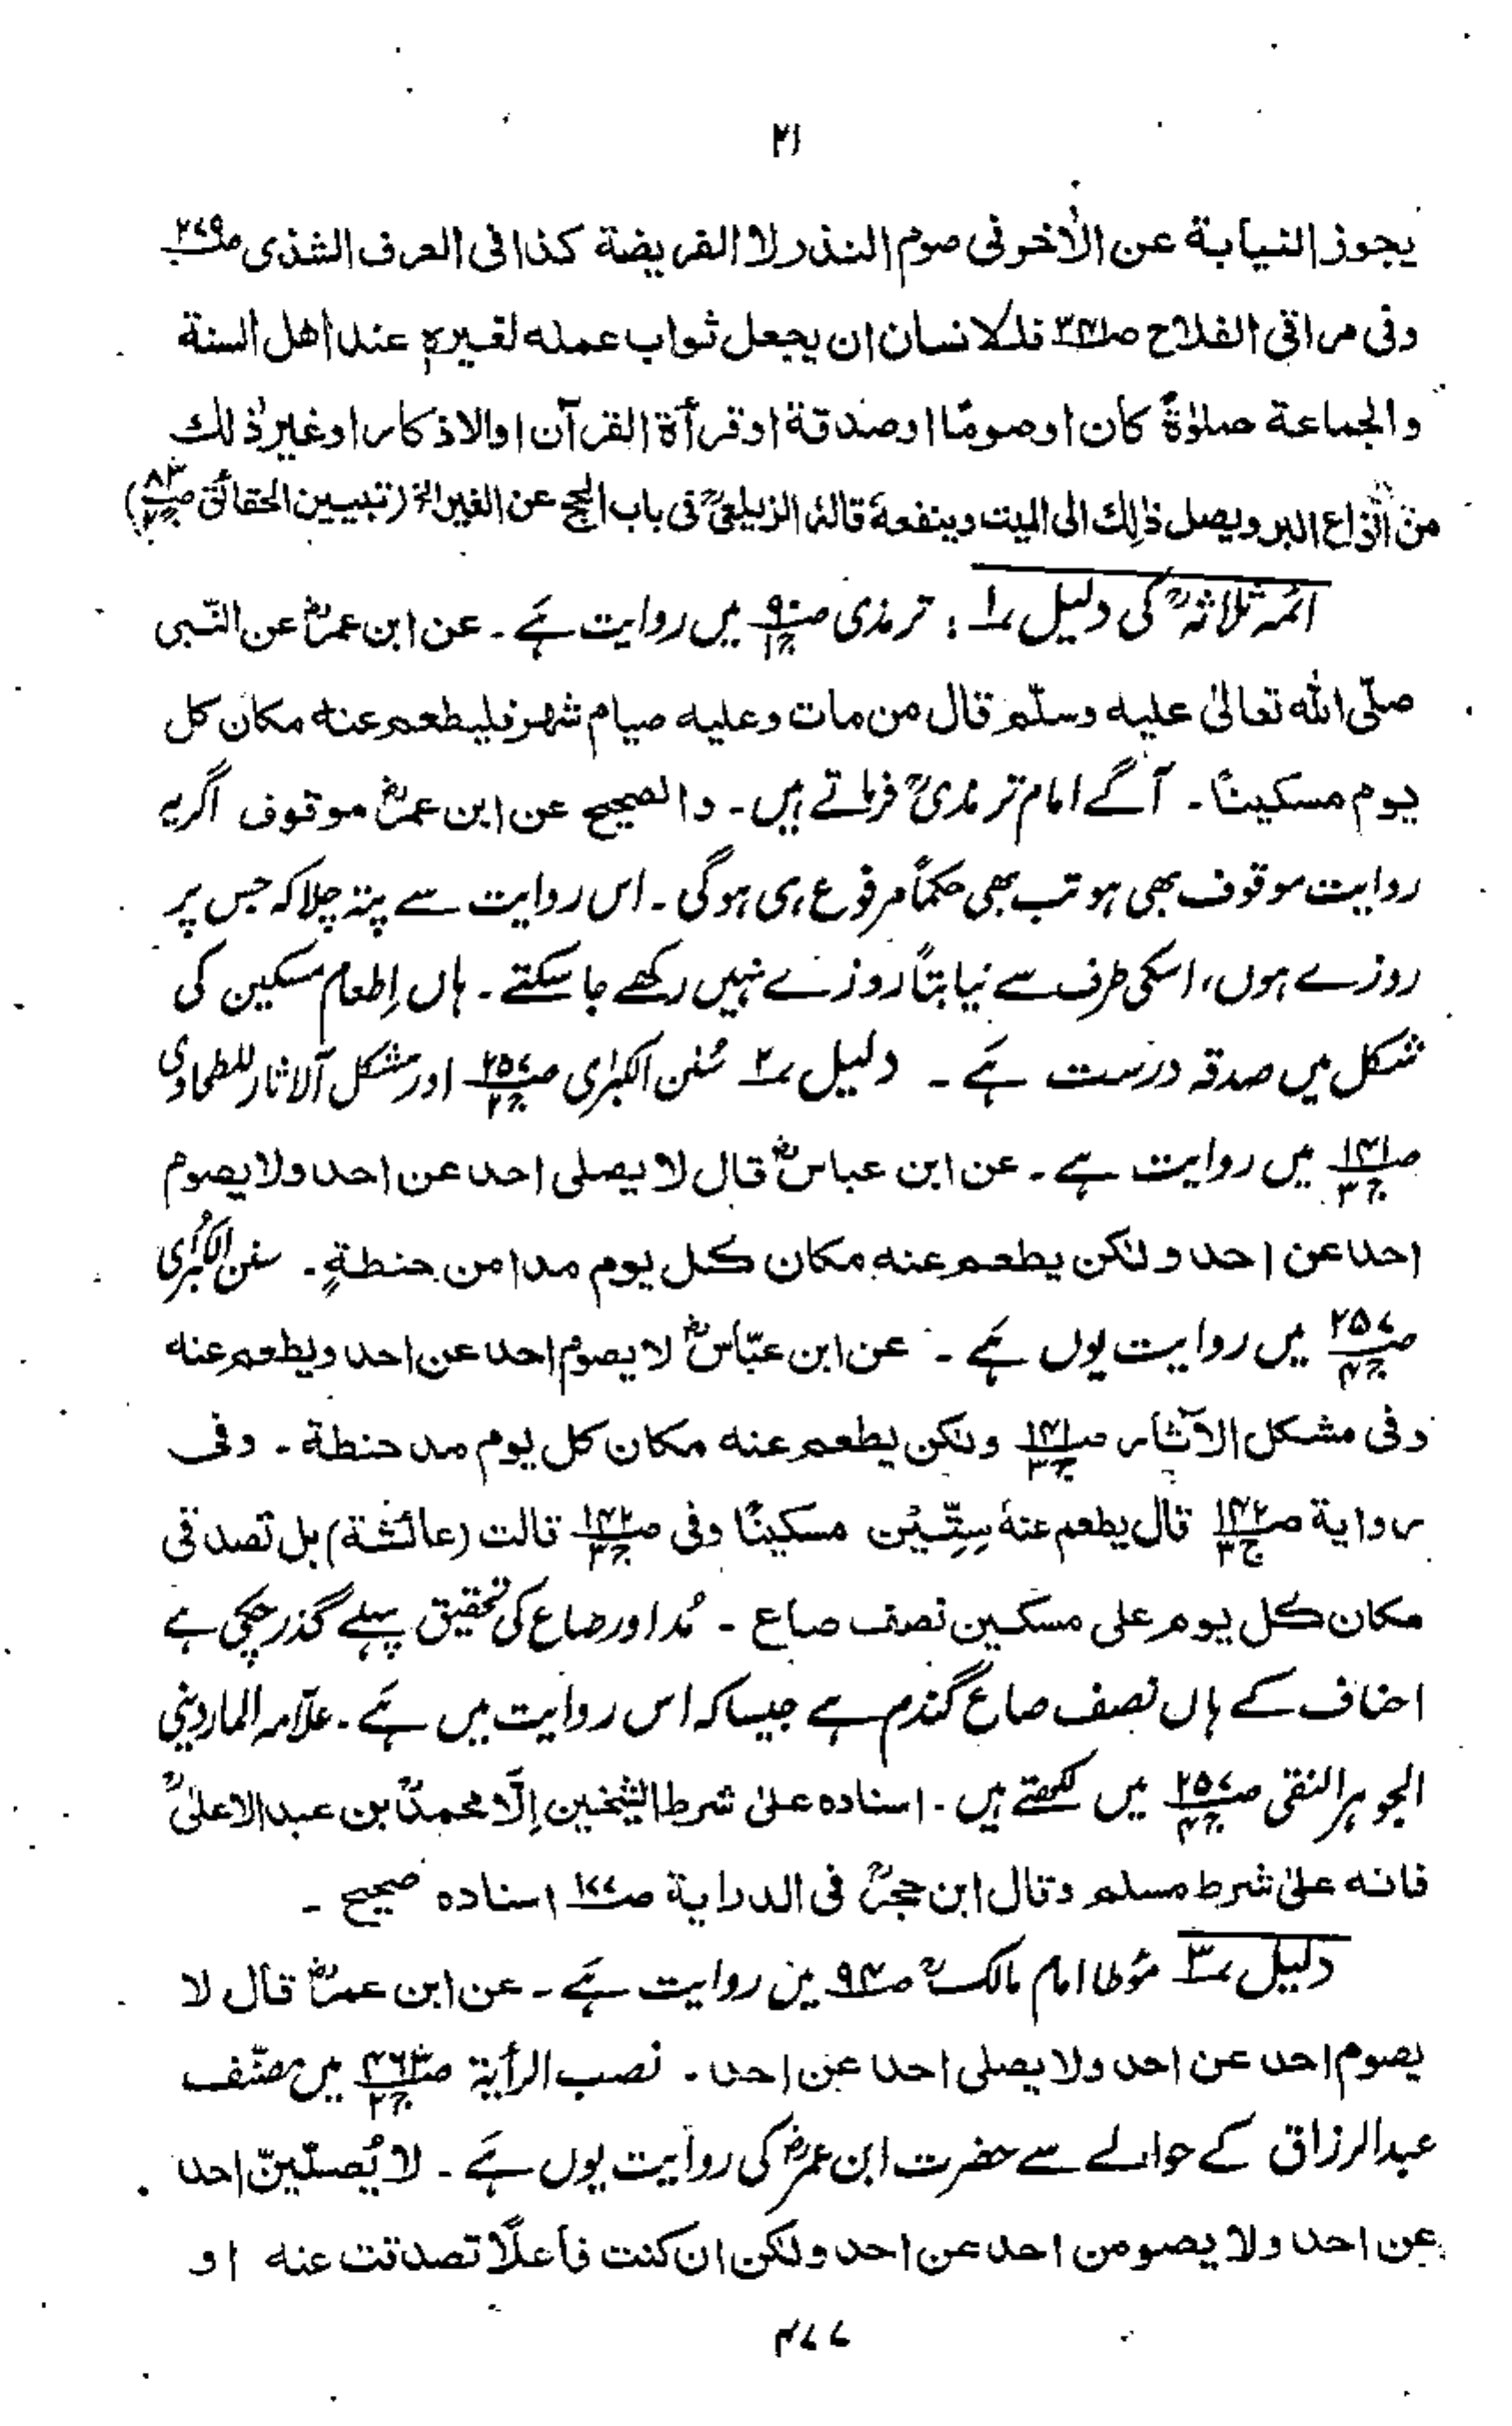 ۲۱
یجوز النیابة عن الأخر فی صوم النذر لا الفریضة کذا فی العرف الشذی ص۲۷۹
وفی مراقی الفلاح ص فللانسان ان یجعل ثواب عمله لغیرہٖ عند اهل السنة
والجماعة صلوٰۃً کان او صومًا او صدقة او قرأة القرآن او الاذکار او غیر ذٰلك
من انواع البر ویصل ذٰلك الی المیت وینفعهٗ قالهٗ الزیلعیؒ فی باب الحج عن الغیر الخ (تبیین الحقائق ص۸۳)
ائمہ ثلاثہؒ کی دلیل ۱؎ : ترمذی ص۹۰ ج۱ میں روایت ہے ۔ عن ابن عمرؓ عن النّبی
صلّی اللہ تعالیٰ علیه وسلّم قال من مات وعلیه صیام شهر فلیطعم عنه مکان کل
یوم مسکینًا ۔ آگے امام ترمذیؒ فرماتے ہیں ۔ والصحیح عن ابن عمرؓ موقوف اگر یہ
روایت موقوف بھی ہو تب بھی حکماً مرفوع ہی ہوگی ۔ اس روایت سے پتہ چلا کہ جس پر
روزے ہوں، اسکی طرف سے نیابتاً روزے نہیں رکھے جاسکتے ۔ ہاں اِطعام مسکین کی
شکل میں صدقہ درست ہے ۔ دلیل ۲؎ سُنن الکبرٰی ص۲۵۷ ج۴ اور مشکل آلاثار للطحاوی
ص۱۴۱ ج۳ میں روایت ہے ۔ عن ابن عباسؓ قال لا یصلی احد عن احد ولا یصوم
احد عن احد ولکن یطعم عنه مکان کل یوم مدا من حنطةٍ ۔ سنن الکُبرٰی
ص۲۵۷ ج۴ میں روایت یوں ہے ۔ عن ابن عبّاسؓ لا یصومُ احد عن احد ویطعم عنه
وفی مشکل الآثار ص۱۴۱ ج۳ ولکن یطعم عنه مکان کل یوم مد حنطة ۔ وفی
روایة ص۱۴۲ ج۳ قال یطعم عنهٗ سِتِّیْن مسکینًا وفی ص۱۴۲ ج۳ قالت (عائشة) بل تصدقی
مکان کل یوم علی مسکین نصف صاع ۔ مُد اور صاع کی تحقیق پہلے گذر چکی ہے
احناف کے ہاں نصف صاع گندم ہے جیسا کہ اس روایت میں ہے ۔ علّامہ الماردینی
الجوہر النقی ص۲۵۷ ج۴ میں لکھتے ہیں ۔ اسنادہ علیٰ شرط الشیخین اِلّا محمدؒ بن عبد الاعلیٰؒ
فانه علیٰ شرط مسلم وقال ابن حجرؒ فی الدرایة ص۱۷۷ اسنادہ صحیح ۔
دلیل ۳؎ مؤطا امام مالکؒ ص۹۴ میں روایت ہے ۔ عن ابن عمرؓ قال لا
یصوم احد عن احد ولا یصلی احد عن احد ۔ نصب الرأیة ص۴۶۳ ج۲ میں مصنّف
عبدالرزاق کے حوالے سے حضرت ابن عمرؓ کی روایت یوں ہے ۔ لا یُصلّینّ احد
عن احد ولا یصومن احد عن احد ولکن ان کنت فاعلًا تصدقت عنه او
۴۷۷